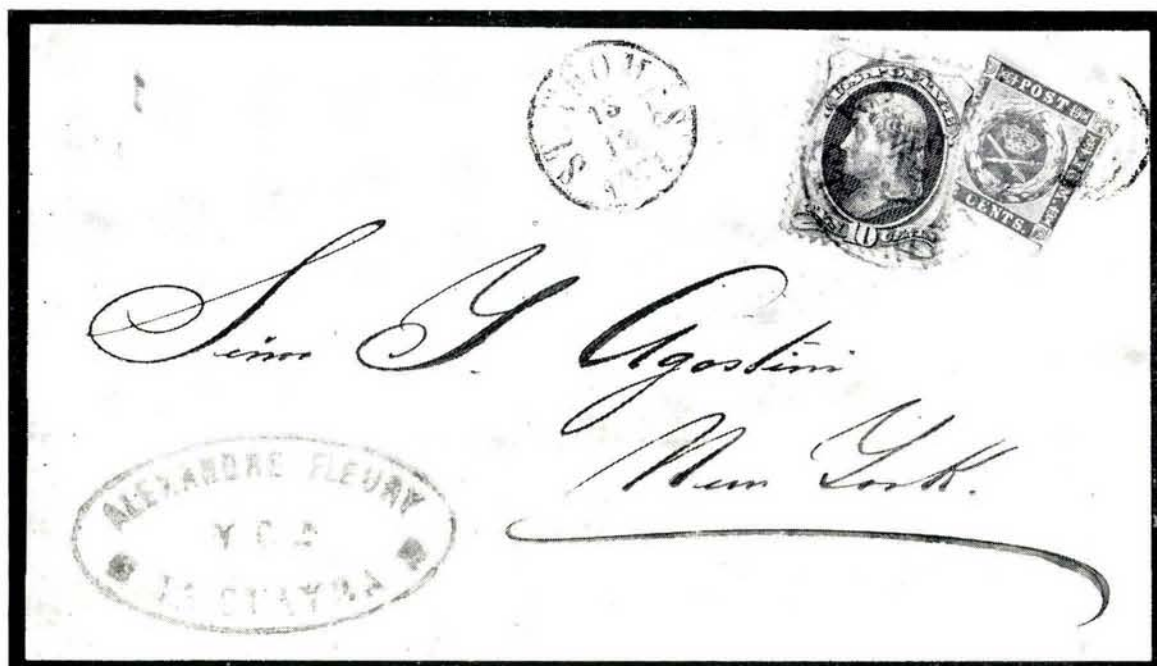 ST. THOMAS
13
POST
CENTS.
10
Señor Y. Agostini
New York.
ALEXANDRE FLEURY
Y CA
LA GUAYRA